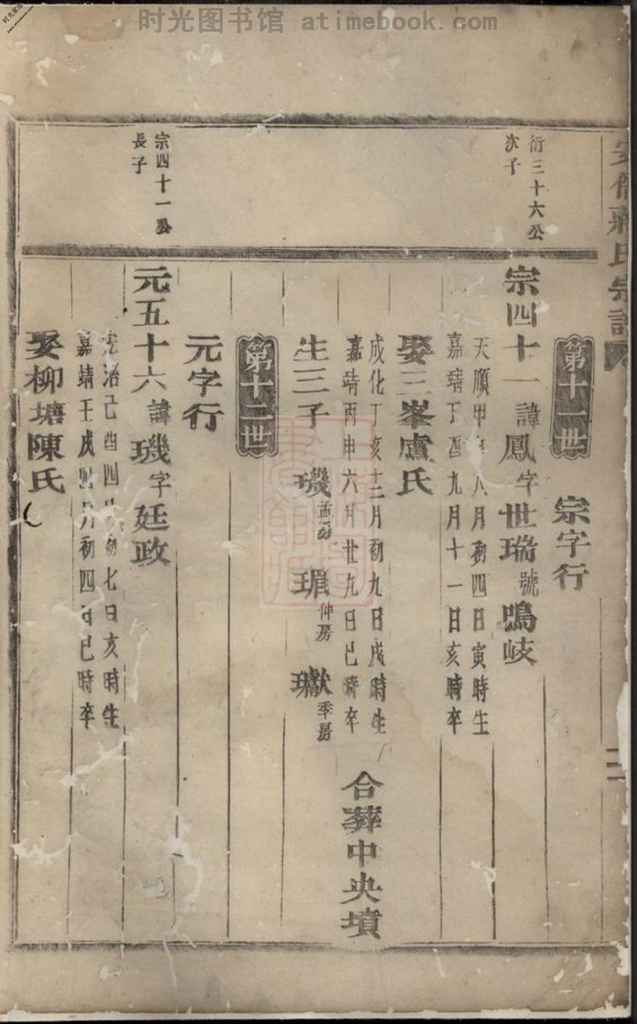 时光图书馆 atimebook.com
氏宗譜
第十一世
宗字行
衍三十六公
次子
宗四十一 諱鳳 字世瑞 號鳴岐
天順甲 八月初四日寅時生
嘉靖丁酉九月十一日亥時卒
娶三峯盧氏
成化丁亥十二月初九日戌時生
嘉靖丙申六月廿九日巳時卒
合葬中央墳
生三子 璣 孟房 瑂 仲房 季房
第十二世
元字行
宗四十一公
長子
元五十六 諱璣 字廷政
治己酉四 初七日亥時生
嘉靖壬戌 月初四日巳時卒
娶柳塘陳氏